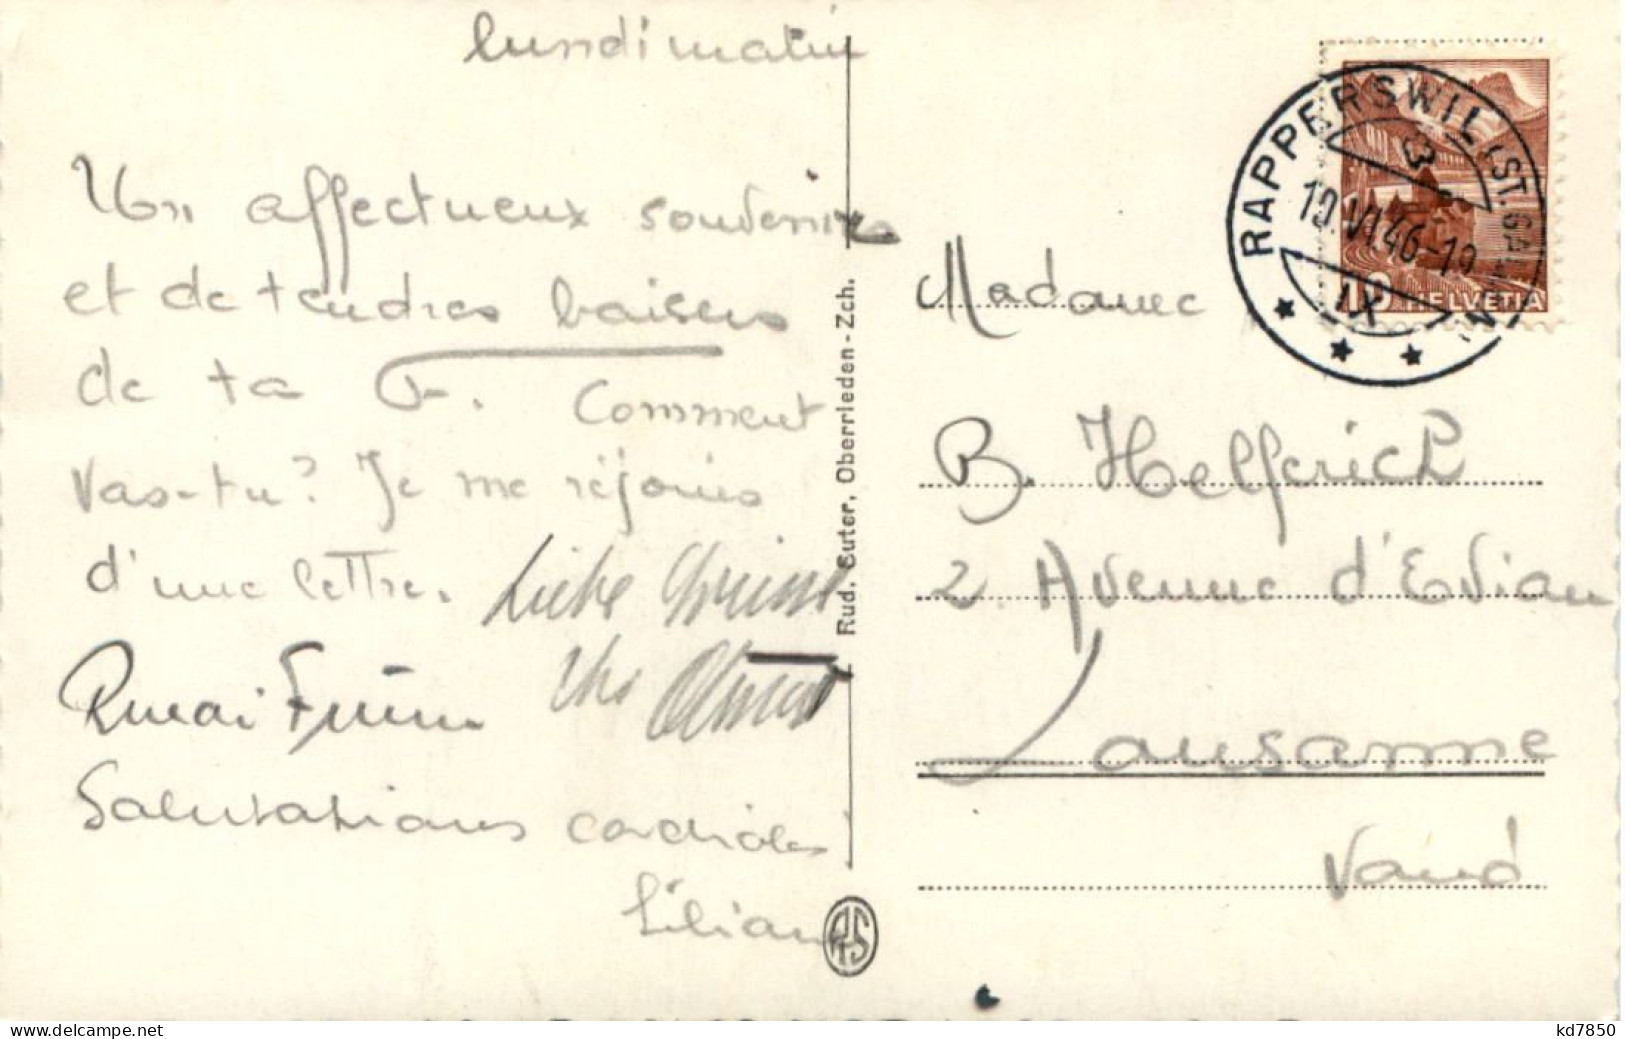 lundi matin
Un affectueux souvenir
et de tendres baisers
de ta F. Comment
vas-tu? Je me réjouis
d'une lettre.
Liebe Grüsse
Salutations cordiales
Lilian
Rud. Suter, Oberrieden-Zch.
RS
RAPPERSWIL (ST. GALLEN)
10.VI.46-19
IX
10 HELVETIA
Madame
B. Helferich
2. Avenue d'Evian
Lausanne
Vaud
kd7850